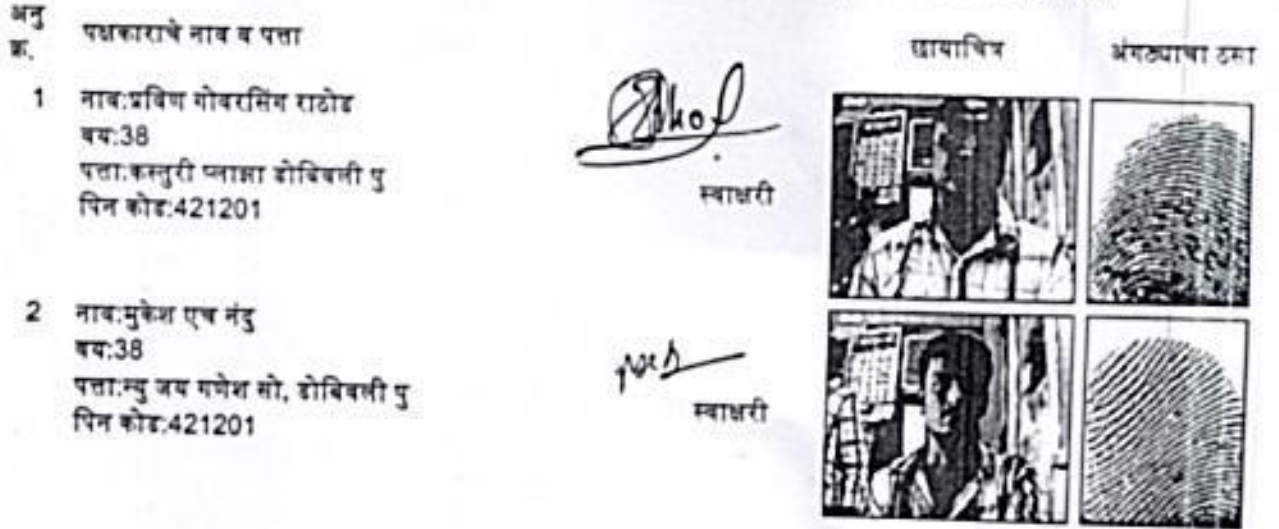 अनु
क्र. पक्षकाराचे नाव व पत्ता
छायाचित्र अंगठ्याचा ठसा
1 नाव:प्रविण गोवरसिंग राठोड
वय:38
पत्ता:कस्तुरी प्लाझा डोंबिवली पु
पिन कोड:421201
स्वाक्षरी
2 नाव:मुकेश एच नंदु
वय:38
पत्ता:न्यु जय गणेश सो, डोंबिवली पु
पिन कोड:421201
स्वाक्षरी